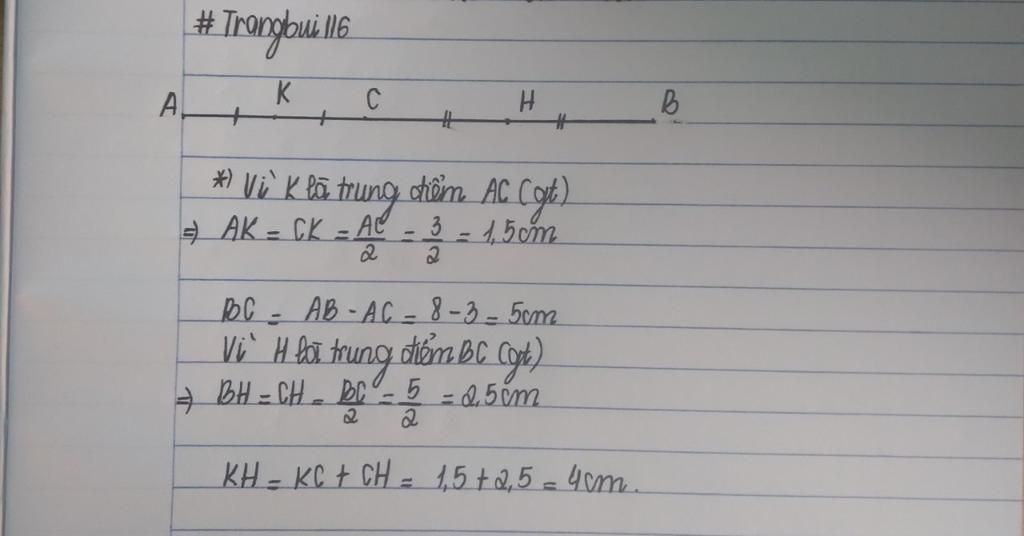 # Trangbui116
A K C H B
*) Vì K là trung điểm AC (gt)
=) AK = CK = AC/2 = 3/2 = 1,5cm
BC = AB - AC = 8 - 3 = 5cm
Vì H là trung điểm BC (gt)
=) BH = CH = BC/2 = 5/2 = 2,5cm
KH = KC + CH = 1,5 + 2,5 = 4cm.